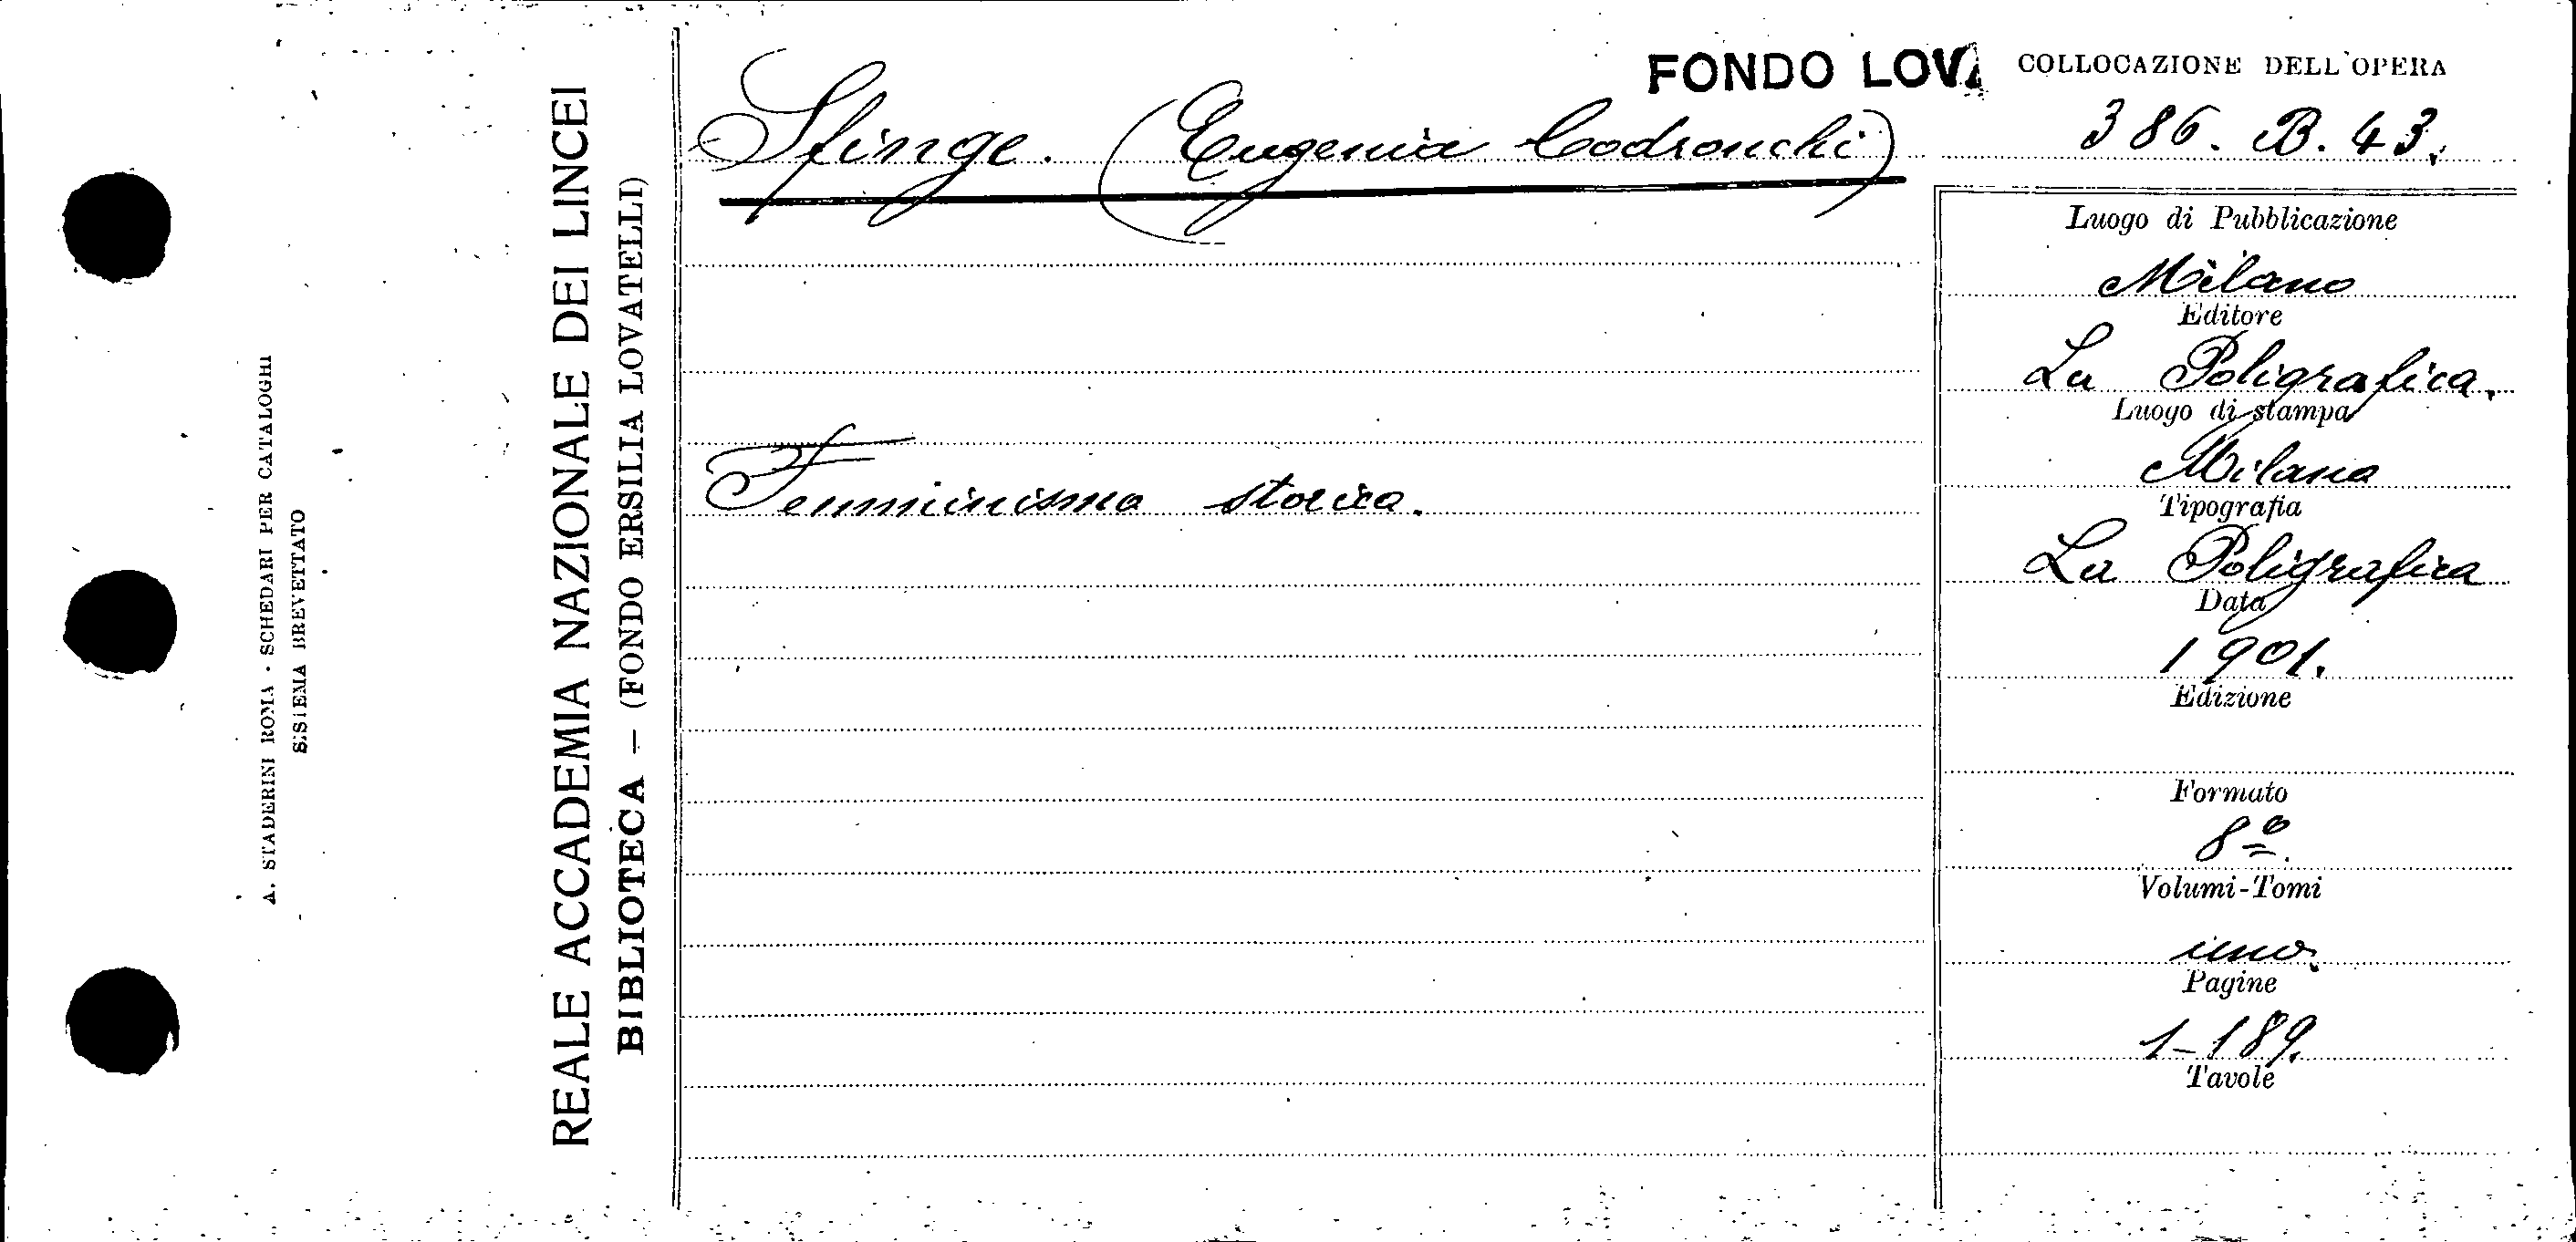 A. STADERINI ROMA - SCHEDARI PER CATALOGHI
SISTEMA BREVETTATO
REALE ACCADEMIA NAZIONALE DEI LINCEI
BIBLIOTECA – (FONDO ERSILIA LOVATELLI)
FONDO LOVA
COLLOCAZIONE DELL'OPERA
386. B. 43.
Sfinge. (Eugenia Codronchi)
Femminismo storico.
Luogo di Pubblicazione
Milano
Editore
La Poligrafica.
Luogo di stampa
Milano
Tipografia
La Poligrafica
Data
1901.
Edizione
Formato
8º.
Volumi-Tomi
uno.
Pagine
1-189.
Tavole